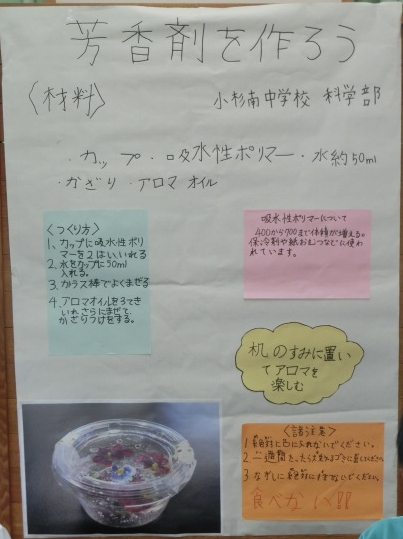 芳香剤を作ろう
〈材料〉
小杉南中学校 科学部
・カップ・吸水性ポリマー・水約50ml
・かざり・アロマオイル
〈つくり方〉
1、カップに吸水性ポリ
マーを2はいいれる
2、水をカップに50ml
入れる。
3、ガラス棒でよくまぜる
4、アロマオイルを3てき
いれさらにまぜて、
かざりつけをする。
吸水性ポリマーについて
400から700まで体積が増える。
保冷剤や紙おむつなどに使わ
れています。
机のすみに置い
てアロマを
楽しむ
〈諸注意〉
1 絶対に口に入れないでください。
2 二週間たったら
3 ながしに絶対に
食べない!!